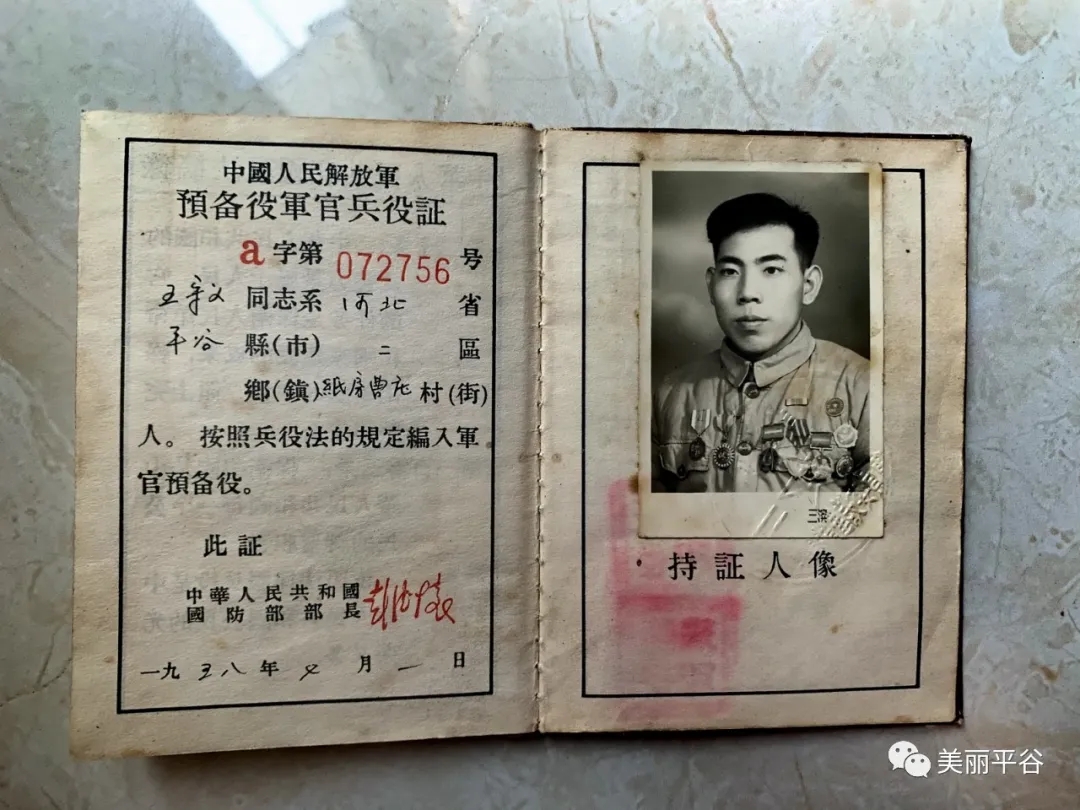 中國人民解放軍
預备役軍官兵役証
a字第 072756 号
王守义 同志系 河北 省
平谷 縣(市) 二 區
鄉(鎮) 紙房曹庄 村(街)
人。按照兵役法的規定編入軍
官預备役。
此証
中華人民共和國
國防部部長 彭德懷
一九五八年七月一日
持証人像
美丽平谷